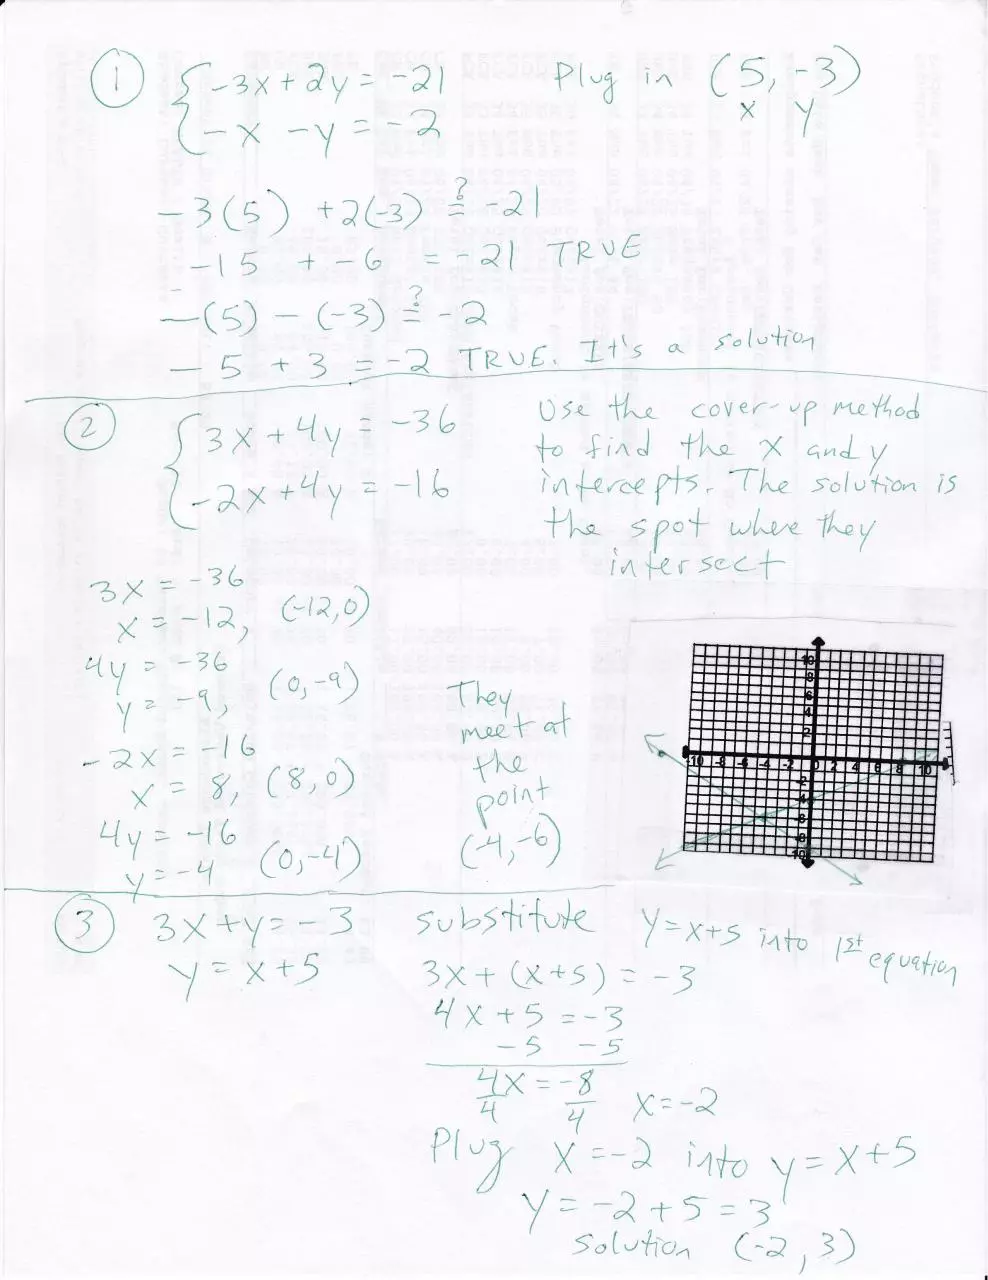 1 { -3x + 2y = -21 Plug in (5, -3)
-x - y = -2 x y
-3(5) + 2(-3) ≟ -21
-15 + -6 = -21 TRUE
-(5) - (-3) ≟ -2
-5 + 3 = -2 TRUE. It's a solution
2 { 3x + 4y = -36
-2x + 4y = -16
Use the cover-up method
to find the x and y
intercepts. The solution is
the spot where they
intersect
3x = -36
x = -12, (-12,0)
4y = -36
y = -9, (0,-9)
-2x = -16
x = 8, (8,0)
4y = -16
y = -4 (0,-4)
They
meet at
the
point
(-4,-6)
10
8
6
4
2
-10 -8 -6 -4 -2 0 2 4 6 8 10
-2
-4
-6
-8
-10
3 3x + y = -3
y = x + 5
substitute y = x+5 into 1st equation
3x + (x+5) = -3
4x + 5 = -3
-5 -5
4x = -8
4 4 x = -2
Plug x = -2 into y = x+5
y = -2 + 5 = 3
solution (-2, 3)